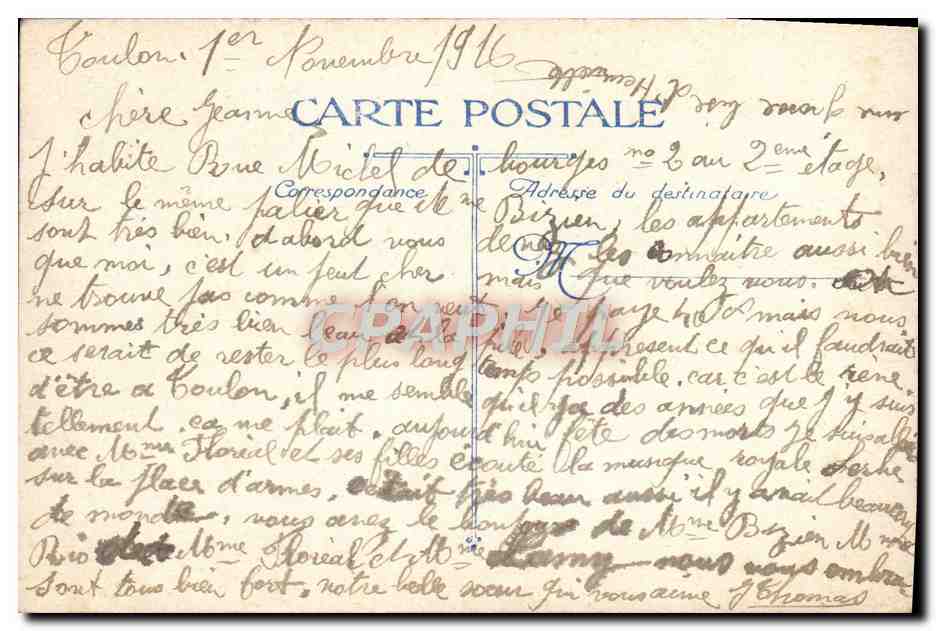 Toulon. 1er Novembre 1916
chère Jeanne
CARTE POSTALE
J'habite Rue Michel de bourges no 2 au 2eme étage,
Correspondance
Adresse du destinataire
sur le même palier que Mme Bizien, les appartements
sont très bien. d'abord vous devez les connaitre aussi bien
M
que moi, c'est un peut cher mais que voulez vous. on
ne trouve pas comme l'on veut, je paye 40 mais nous
CPAPHIL
sommes très bien l'eau et la apresent ce qu'il faudrait
ce serait de rester le plus longtemps possible. car c'est le rêve
d'être a Toulon, il me semble qu'il y a des années que j'y suis
tellement ça me plait. aujourd'hui fête des morts je suis
avec Mme Floréal et ses filles écouté la musique royale Serbe
sur la place d'armes, c'était très beau aussi il y avait beaucoup
de monde, vous avez le bonjour de Mme Bizien Mme
Rio Mme Floréal et Mme Lamy nous vous embras
sont tous bien fort, notre belle sœur qui vous aime J Thomas